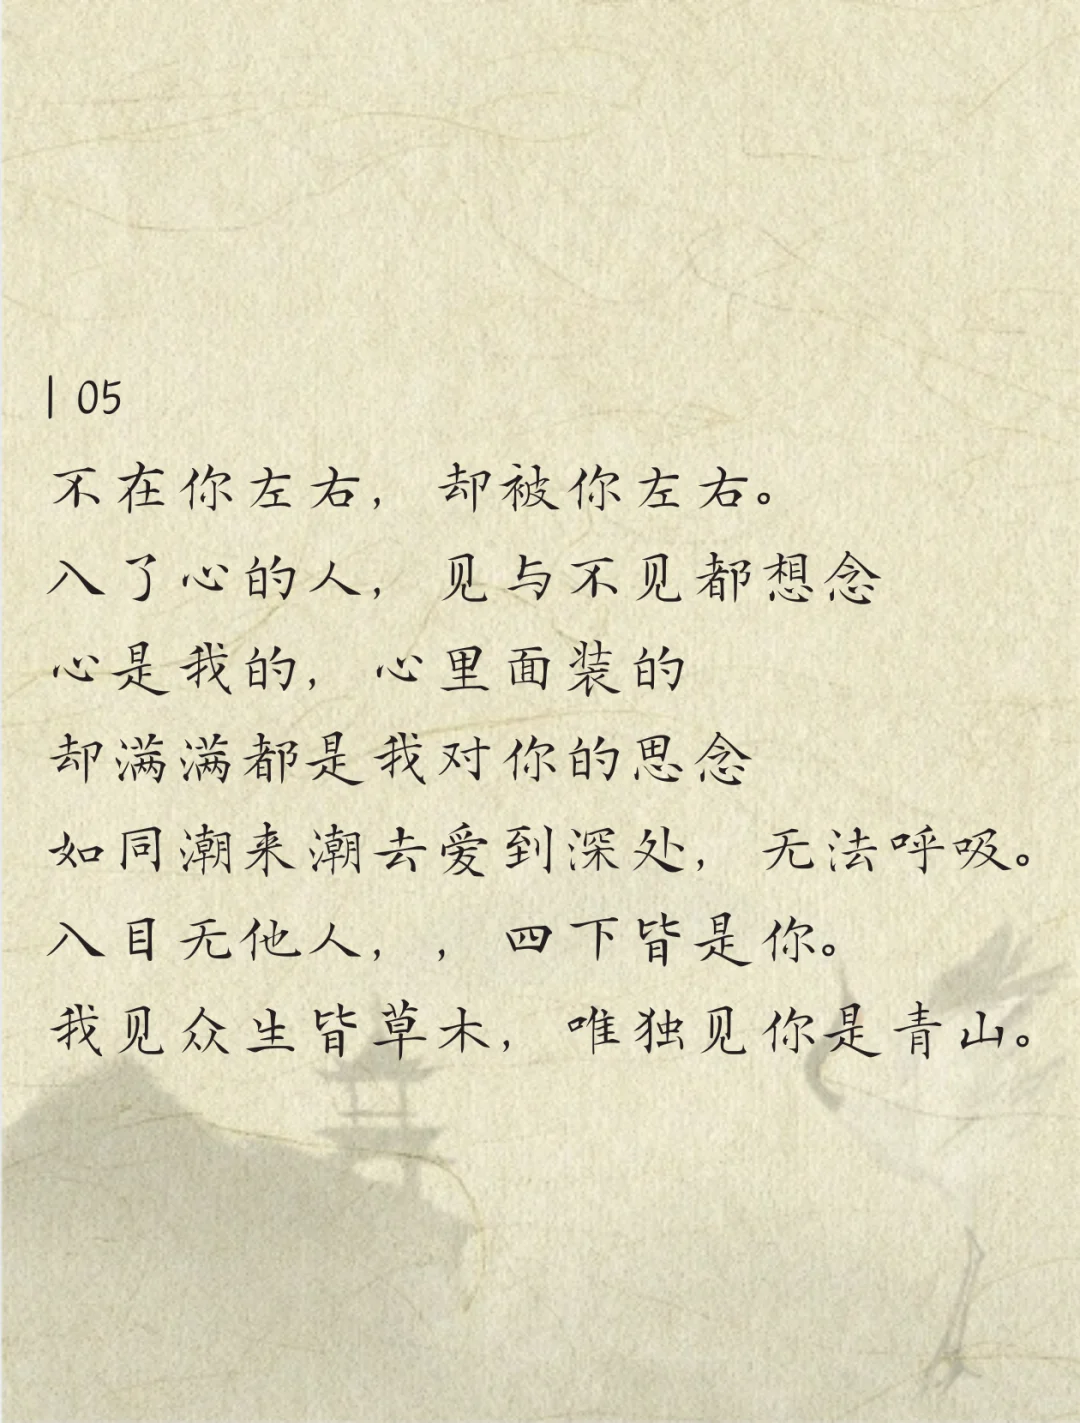 | 05
不在你左右，却被你左右。
入了心的人，见与不见都想念
心是我的，心里面装的
却满满都是我对你的思念
如同潮来潮去爱到深处，无法呼吸。
入目无他人，，四下皆是你。
我见众生皆草木，唯独见你是青山。